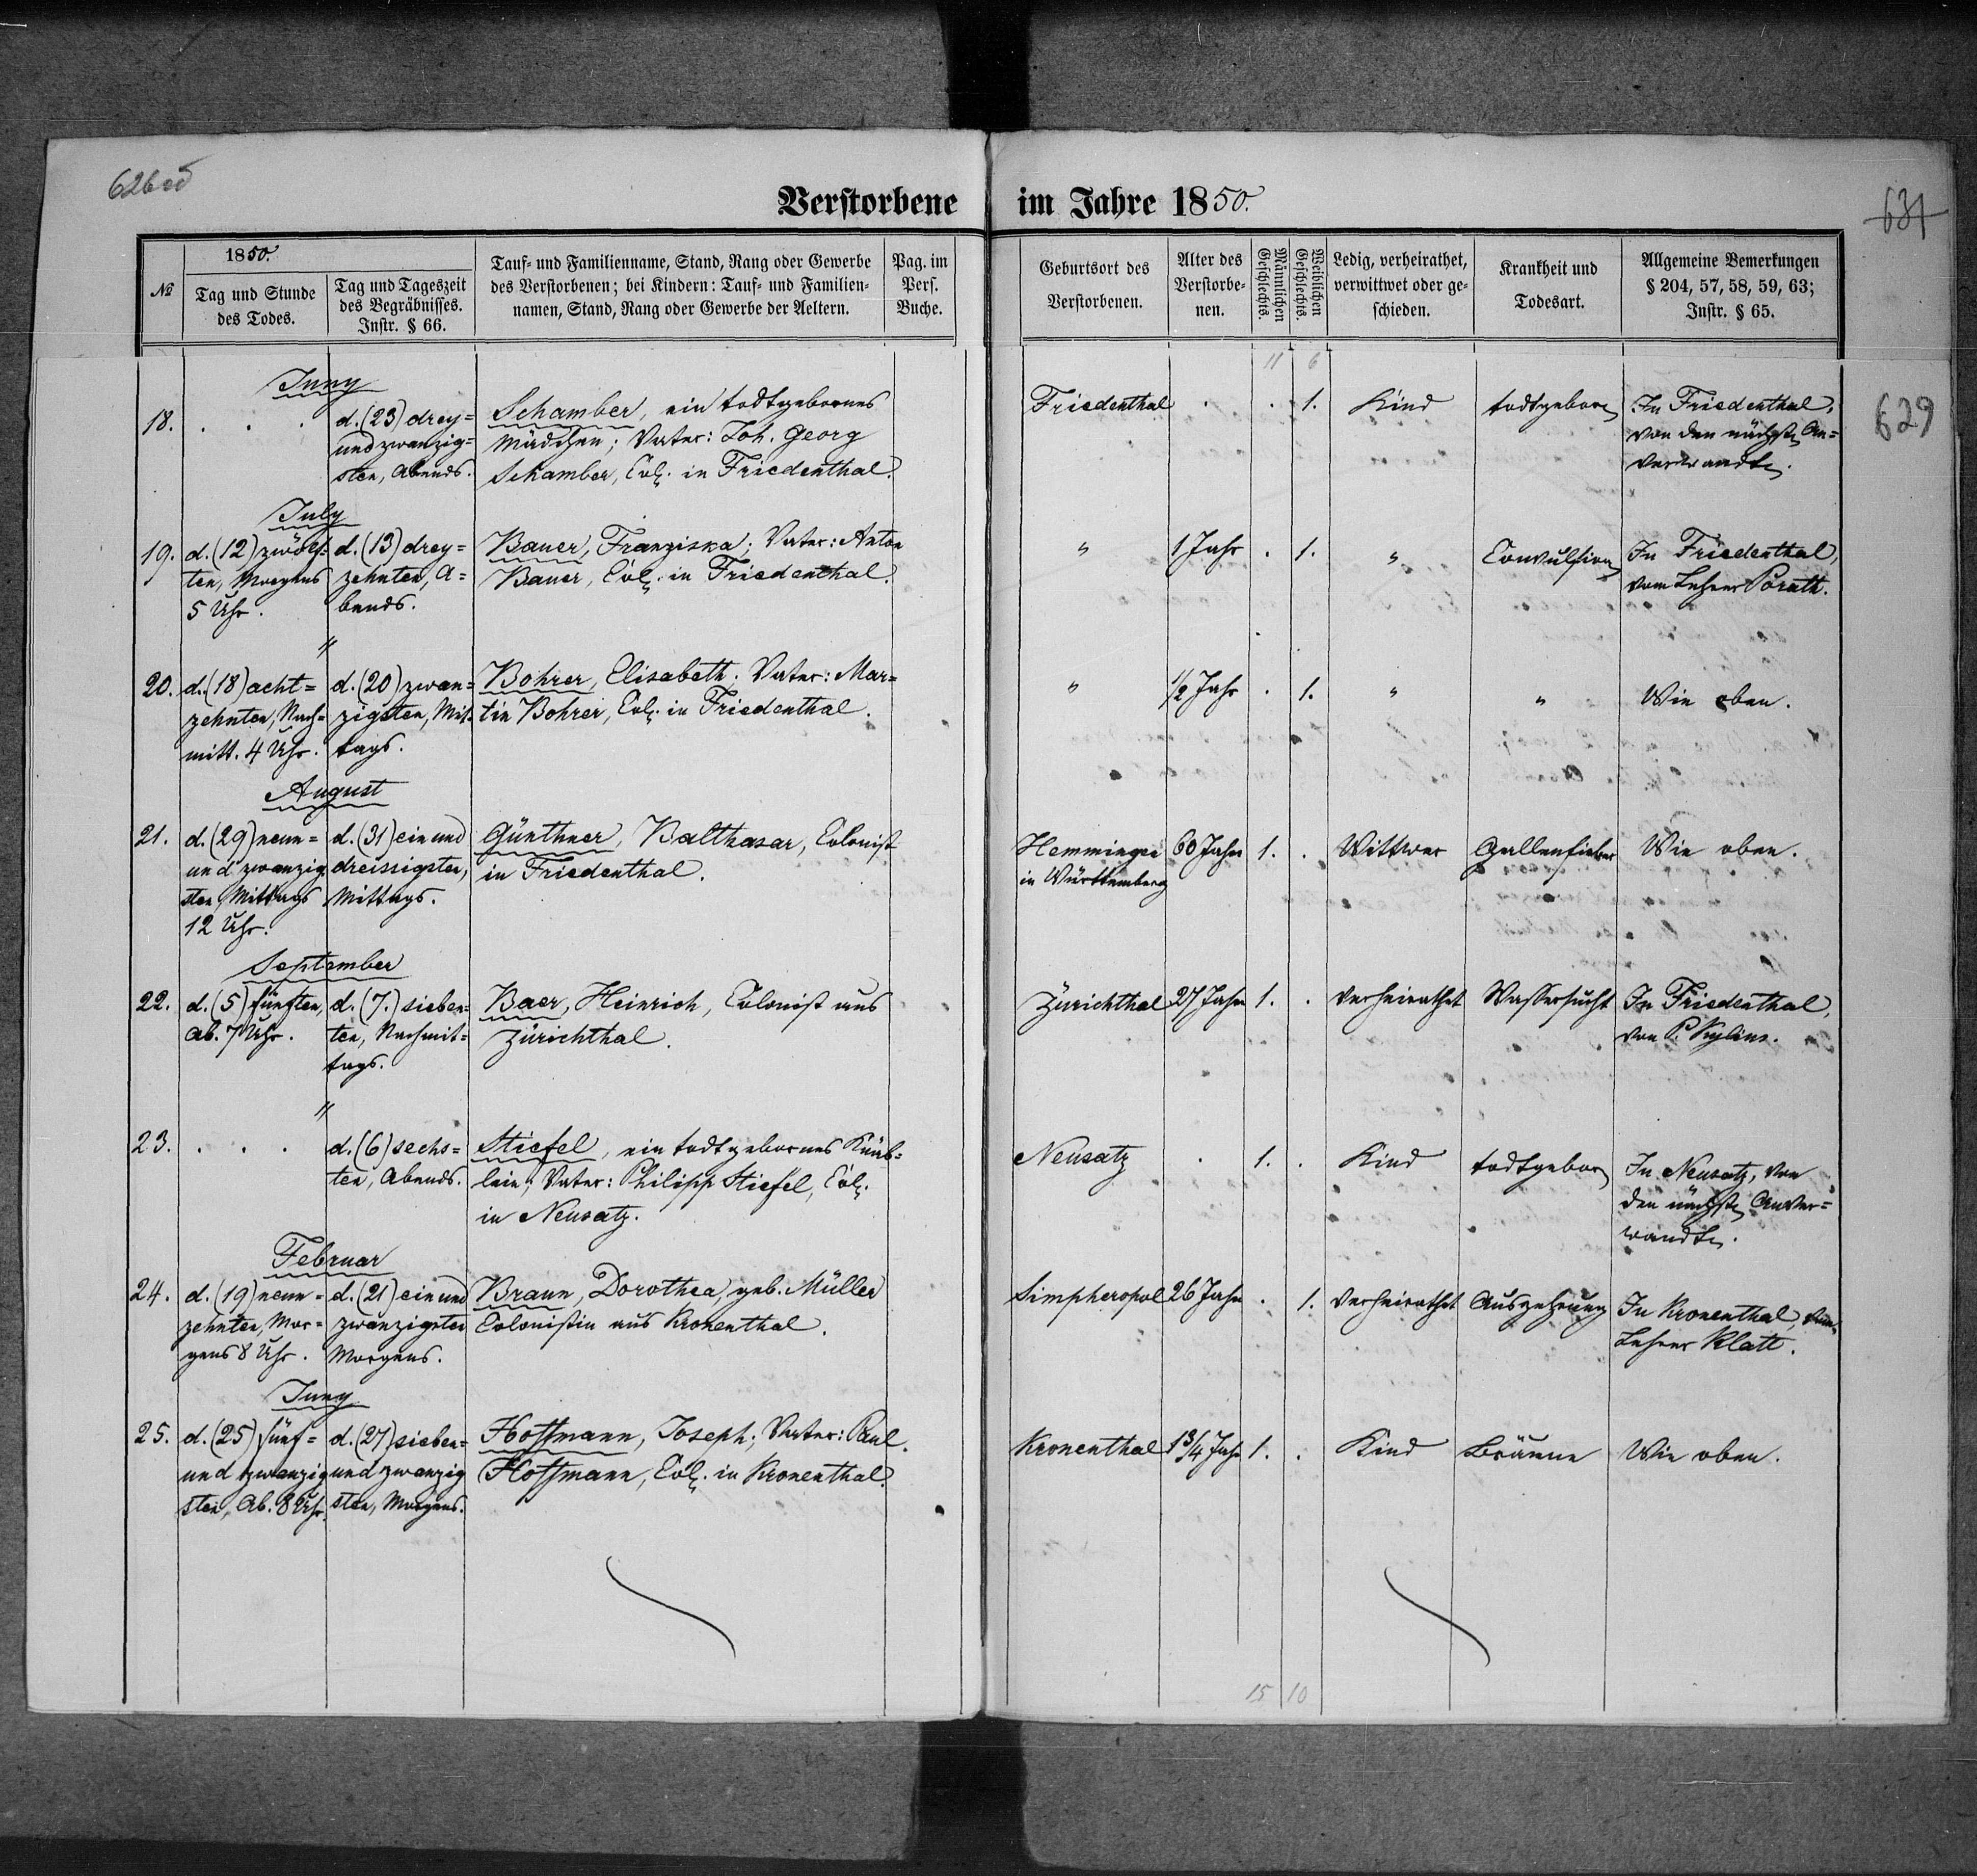 626 об
Verstorbene im Jahre 1850.
631
629
№
1850.
Tag und Stunde
des Todes.
Tag und Tageszeit
des Begräbnisses.
Instr. § 66.
Tauf- und Familienname, Stand, Rang oder Gewerbe
des Verstorbenen; bei Kindern: Tauf- und Familien-
namen, Stand, Rang oder Gewerbe der Aeltern.
Pag. im
Pers.
Buche.
Geburtsort des
Verstorbenen.
Alter des
Verstorbe-
nen.
Männlichen
Geschlechts.
Weiblichen
Geschlechts.
Ledig, verheirathet,
verwittwet oder ge-
schieden.
Krankheit und
Todesart.
Allgemeine Bemerkungen
§ 204, 57, 58, 59, 63;
Instr. § 65.
11 6
Juny
18. . . .
d. (23) drey=
und zwanzig=
sten, Abends.
Schamber, ein todtgebornes
Mädchen; Vater: Joh. Georg
Schamber, Col. in Friedenthal.
Friedenthal . . 1. Kind todtgeboren
In Friedenthal,
von den nächsten An=
verwandten.
July
19. d. (12) zwölf=
ten, Morgens
5 Uhr.
d. (13) drey=
zehnten, A=
bends.
Bauer, Franziska; Vater: Anton
Bauer, Col. in Friedenthal.
" 1 Jahr . 1. " Convulsion
In Friedenthal,
vom Lehrer Porath.
"
20. d. (18) acht=
zehnten, Nach=
mitt. 4 Uhr.
d. (20) zwan=
zigsten, Mit=
tags.
Bohrer, Elisabeth; Vater: Mar=
tin Bohrer, Col. in Friedenthal.
" 1/2 Jahr . 1. " " Wie oben.
August
21. d. (29) neun=
und zwanzig
sten, Mittags
12 Uhr.
d. (31) ein und
dreissigsten,
Mittags.
Günthner, Balthasar, Colonist
in Friedenthal.
Hemmingen
in Württemberg
60 Jahre 1. . Wittwer Gallenfieber Wie oben.
September
22. d. (5) fünften,
Ab. 7 Uhr.
d. (7.) sieben=
ten, Nachmit=
tags.
Baer, Heinrich, Colonist aus
Zürichthal.
Zürichthal 27 Jahre 1. . verheirathet Wassersucht
In Friedenthal,
von P. Kylius.
"
23. . . .
d. (6) sechs=
ten, Abends.
Stiefel, ein todtgebornes Knäb=
lein; Vater: Philipp Stiefel, Col.
in Neusatz.
Neusatz . 1. . Kind todtgeboren
In Neusatz, von
den nächsten Anver=
wandten.
Februar
24. d. (19) neun=
zehnten, Mor=
gens 8 Uhr.
d. (21) ein und
zwanzigsten
Morgens.
Braun, Dorothea, geb. Müller
Colonistin aus Kronenthal.
Simpheropol 26 Jahre . 1. verheirathet Auszehrung
In Kronenthal, vom
Lehrer Klatt.
Juny
25. d. (25) fünf=
und zwanzig
sten, Ab. 8 Uhr.
d. (27) sieben=
und zwanzig
sten, Morgens.
Hoffmann, Joseph; Vater: Paul
Hoffmann, Col. in Kronenthal.
Kronenthal 1 3/4 Jahr 1. . Kind Bräune Wie oben.
15 10